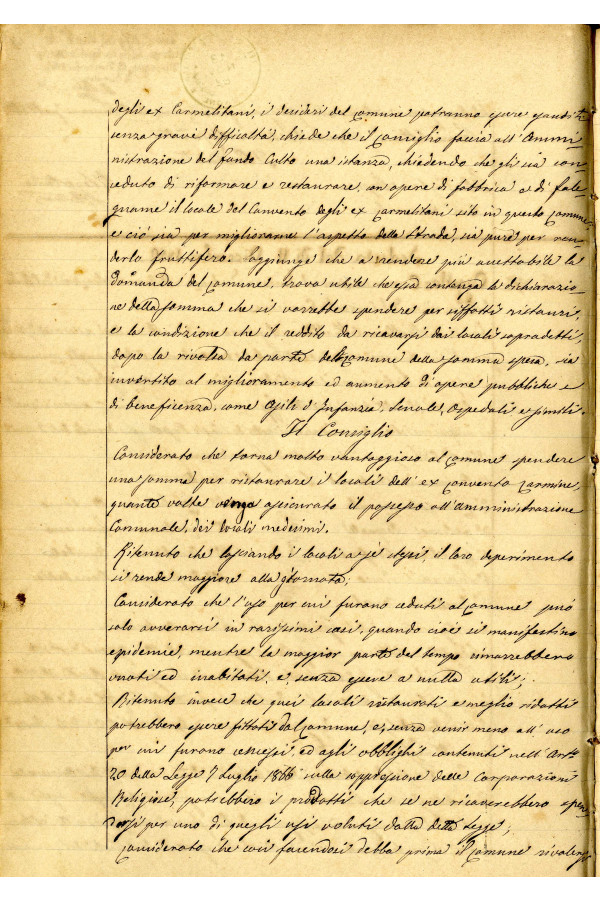 degli ex Carmelitani, i desideri del Comune potranno essere esauditi
senza grave difficoltà, chiede che il Consiglio faccia all'Ammi-
nistrazione del fondo Culto una istanza, chiedendo che gli sia con-
ceduto di riformare e restaurare, con opere di fabbrica e di fale-
gname il locale del Convento degli ex Carmelitani sito in questo Comune
e ciò sia per migliorarne l'aspetto della Strada, sia pure per ren-
derlo fruttifero. Aggiunge che a rendere più accettabile la
domanda del Comune, trova utile che essa contenga la dichiarazio-
ne della somma che si vorrebbe spendere per siffatti ristauri,
e la condizione che il reddito da ricavarsi dai locali sopradetti,
dopo la rivolta da parte del Comune della somma spesa, sia
invertito al miglioramento ed aumento di opere pubbliche e
di beneficenza, come Asili d'Infanzia, Scuole, Ospedali e simili.
Il Consiglio
Considerato che torna molto vantaggioso al Comune spendere
una somma per ristaurare i locali dell'ex Convento Carmine,
quante volte venga assicurato il possesso all'Amministrazione
Comunale, dei locali medesimi.
Ritenuto che lasciando i locali a se stessi, il loro deperimento
si rende maggiore alla giornata;
Considerato che l'uso per cui furono ceduti al Comune può
solo avverarsi in rarissimi casi, quando cioè si manifestino
epidemie, mentre la maggior parte del tempo rimarrebbero
vuoti ed inabitati, e, senza essere a nulla utili;
Ritenuto invece che quei locali ristaurati e meglio ridotti
potrebbero essere fittati dal Comune, e, senza venir meno all'uso
per cui furono concessi, ed agli obblighi contenuti nell'Art.
20 della Legge 7 Luglio 1866 sulla soppressione delle Corporazioni
Religiose, potrebbero i prodotti che se ne ricaverebbero spen-
dersi per uno di quegli usi voluti dalla detta Legge;
Considerato che così facendosi debba prima il Comune rivalersi